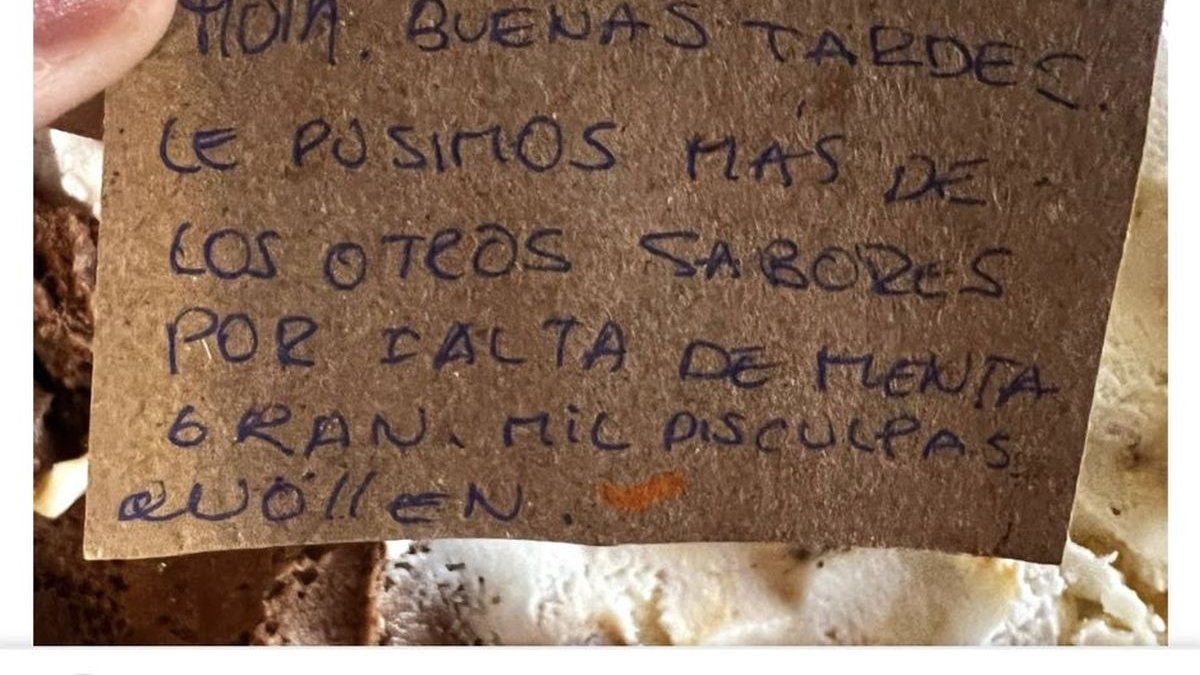 HOLA. BUENAS TARDES.
LE PUSIMOS MÁS DE
LOS OTROS SABORES
POR FALTA DE MENTA
GRAN. MIL DISCULPAS
QUÖLLEN.